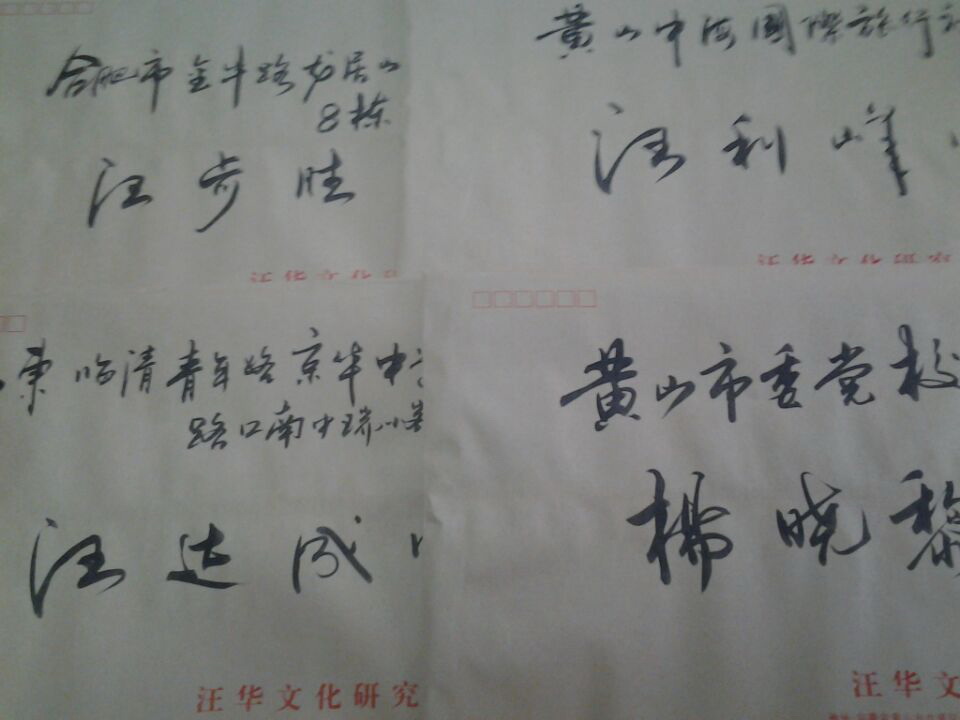 合肥市金牛路龙居山
8栋
汪步胜
汪华文化研
黄山中海國際旅行社
汪利峰
汪华文化研究
东临清青年路京华中
路口南中瑞小
汪达成
汪华文化研究
黄山市委党校
杨晓黎
汪华文